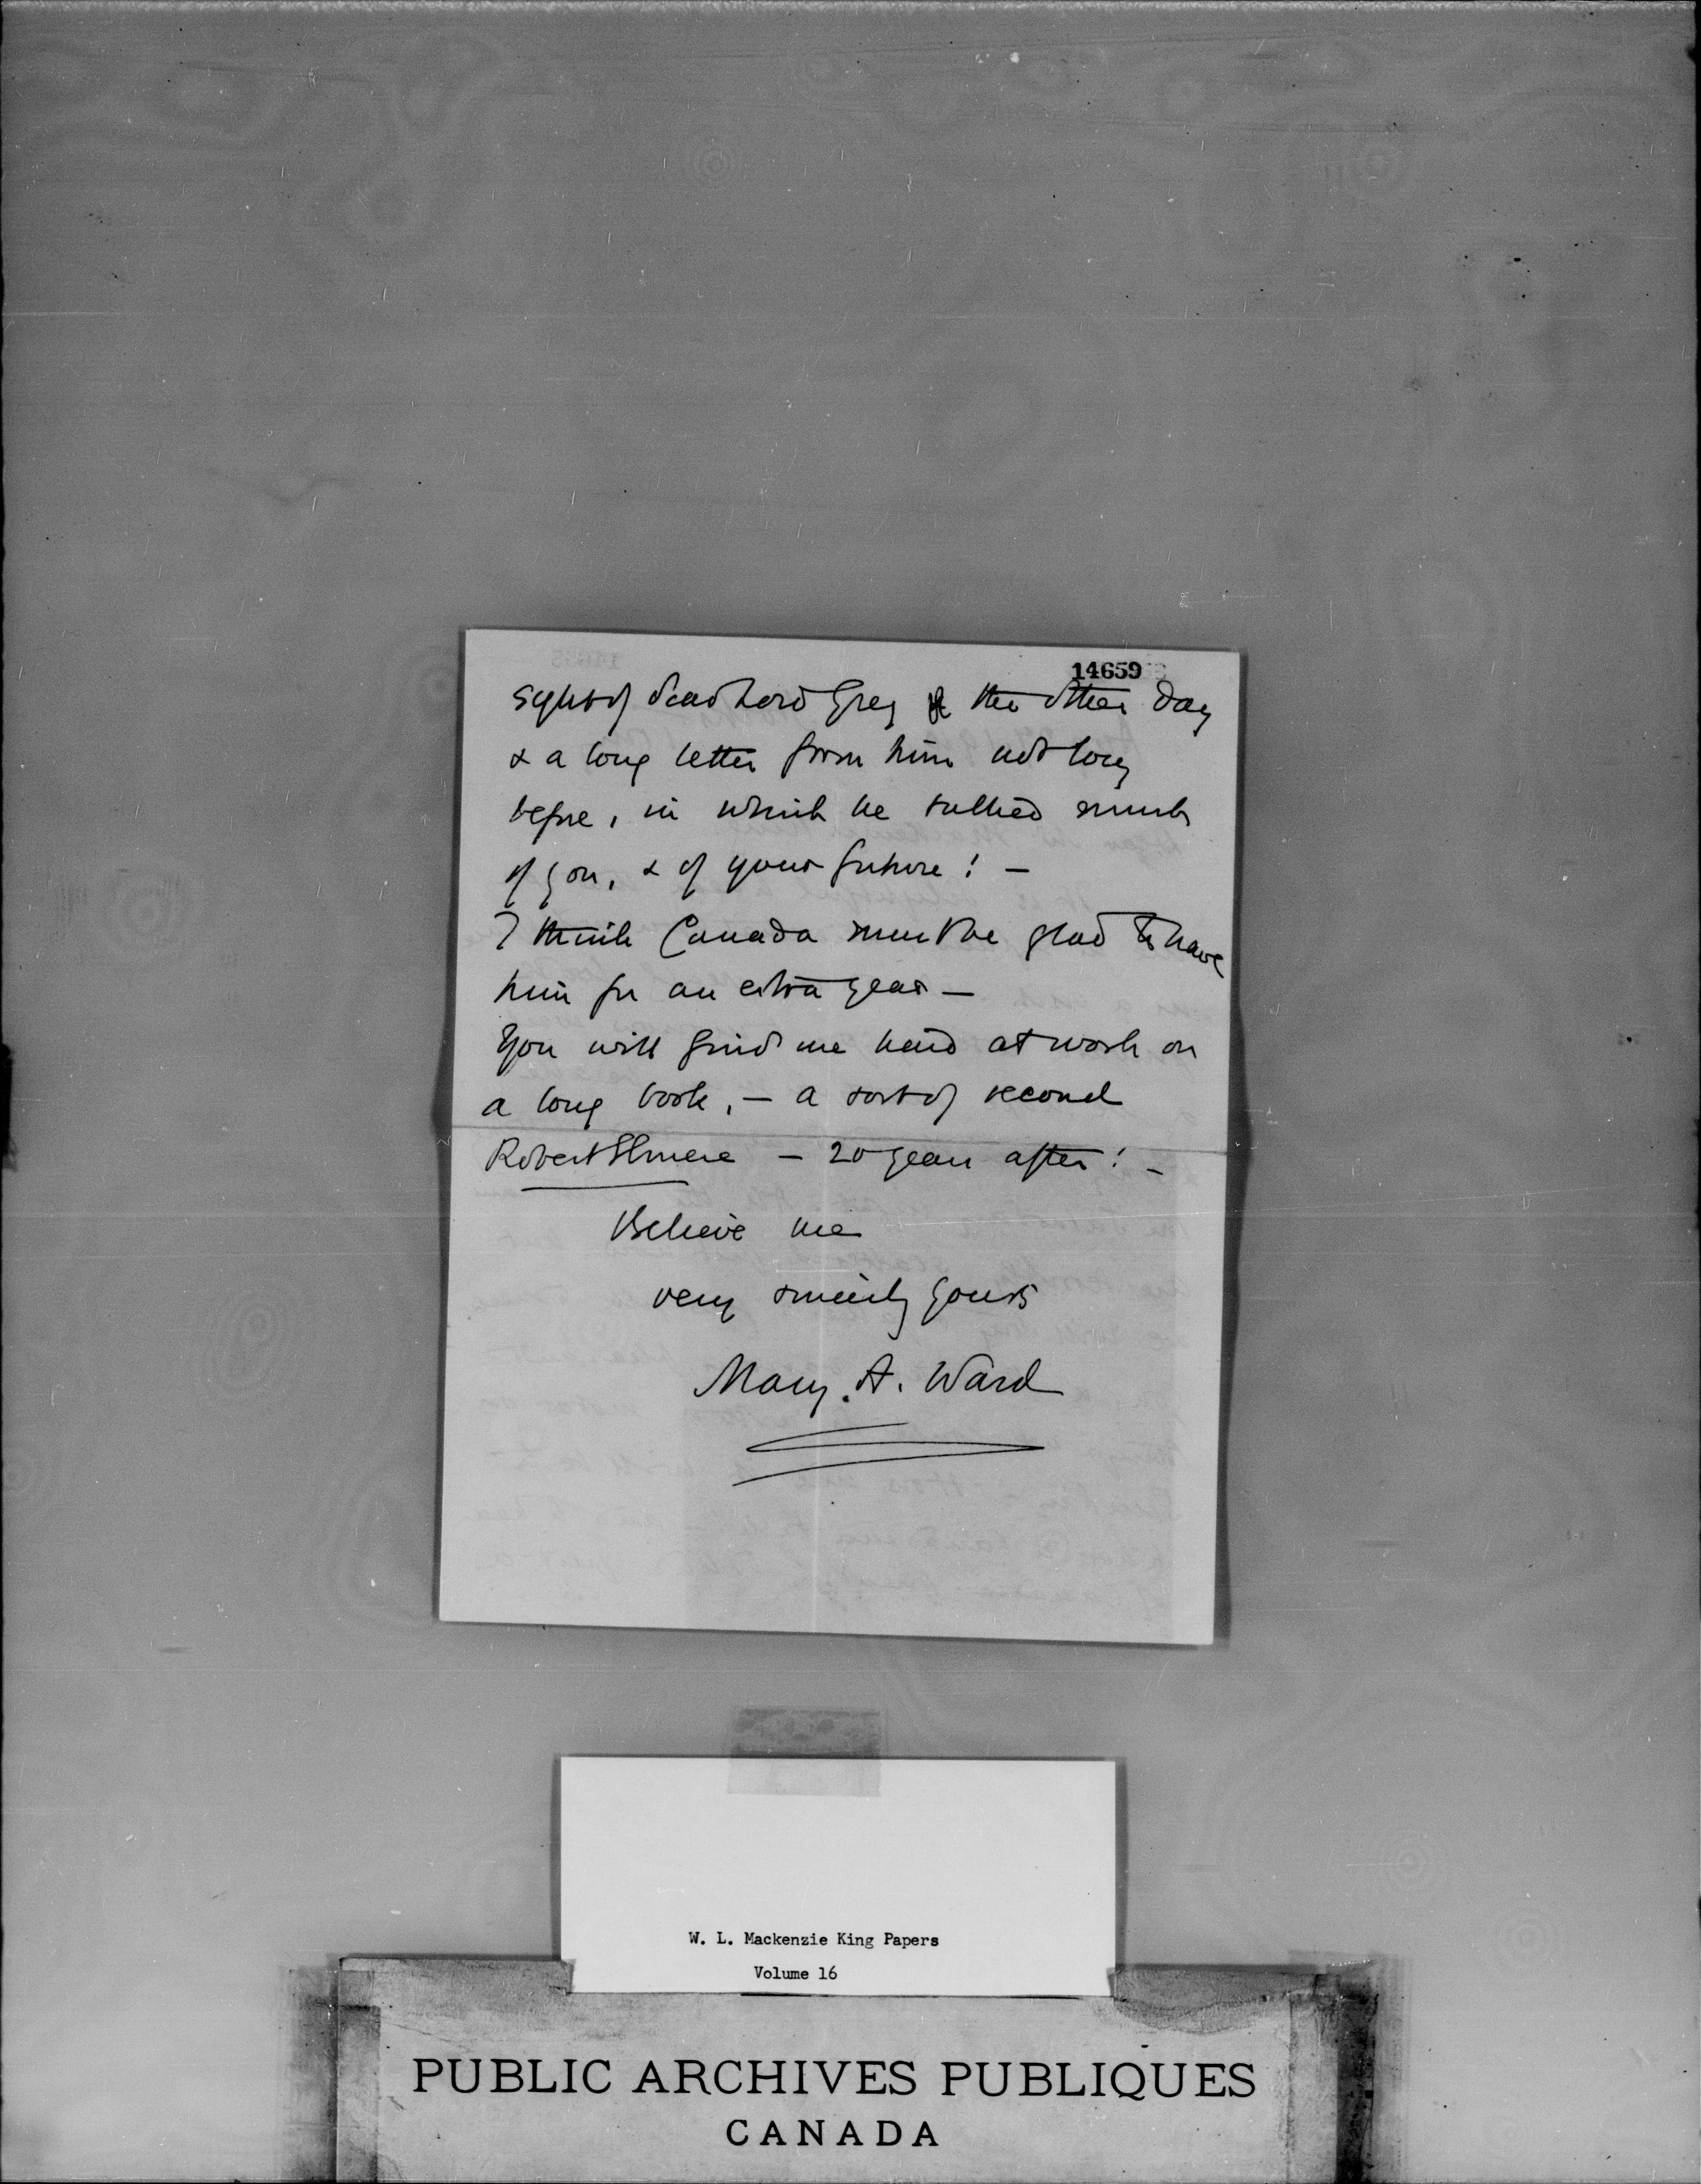 14659
sight of dear Lord Grey the other day
& a long letter from him not long
before, in which he talked much
of you, & of your future! —
I think Canada must be glad to have
him for an extra year —
You will find me hard at work on
a long book, — a sort of second
Robert Elsmere — 20 years after! —
Believe me
very sincerely yours
Mary. A. Ward
W. L. Mackenzie King Papers
Volume 16
PUBLIC ARCHIVES PUBLIQUES
CANADA